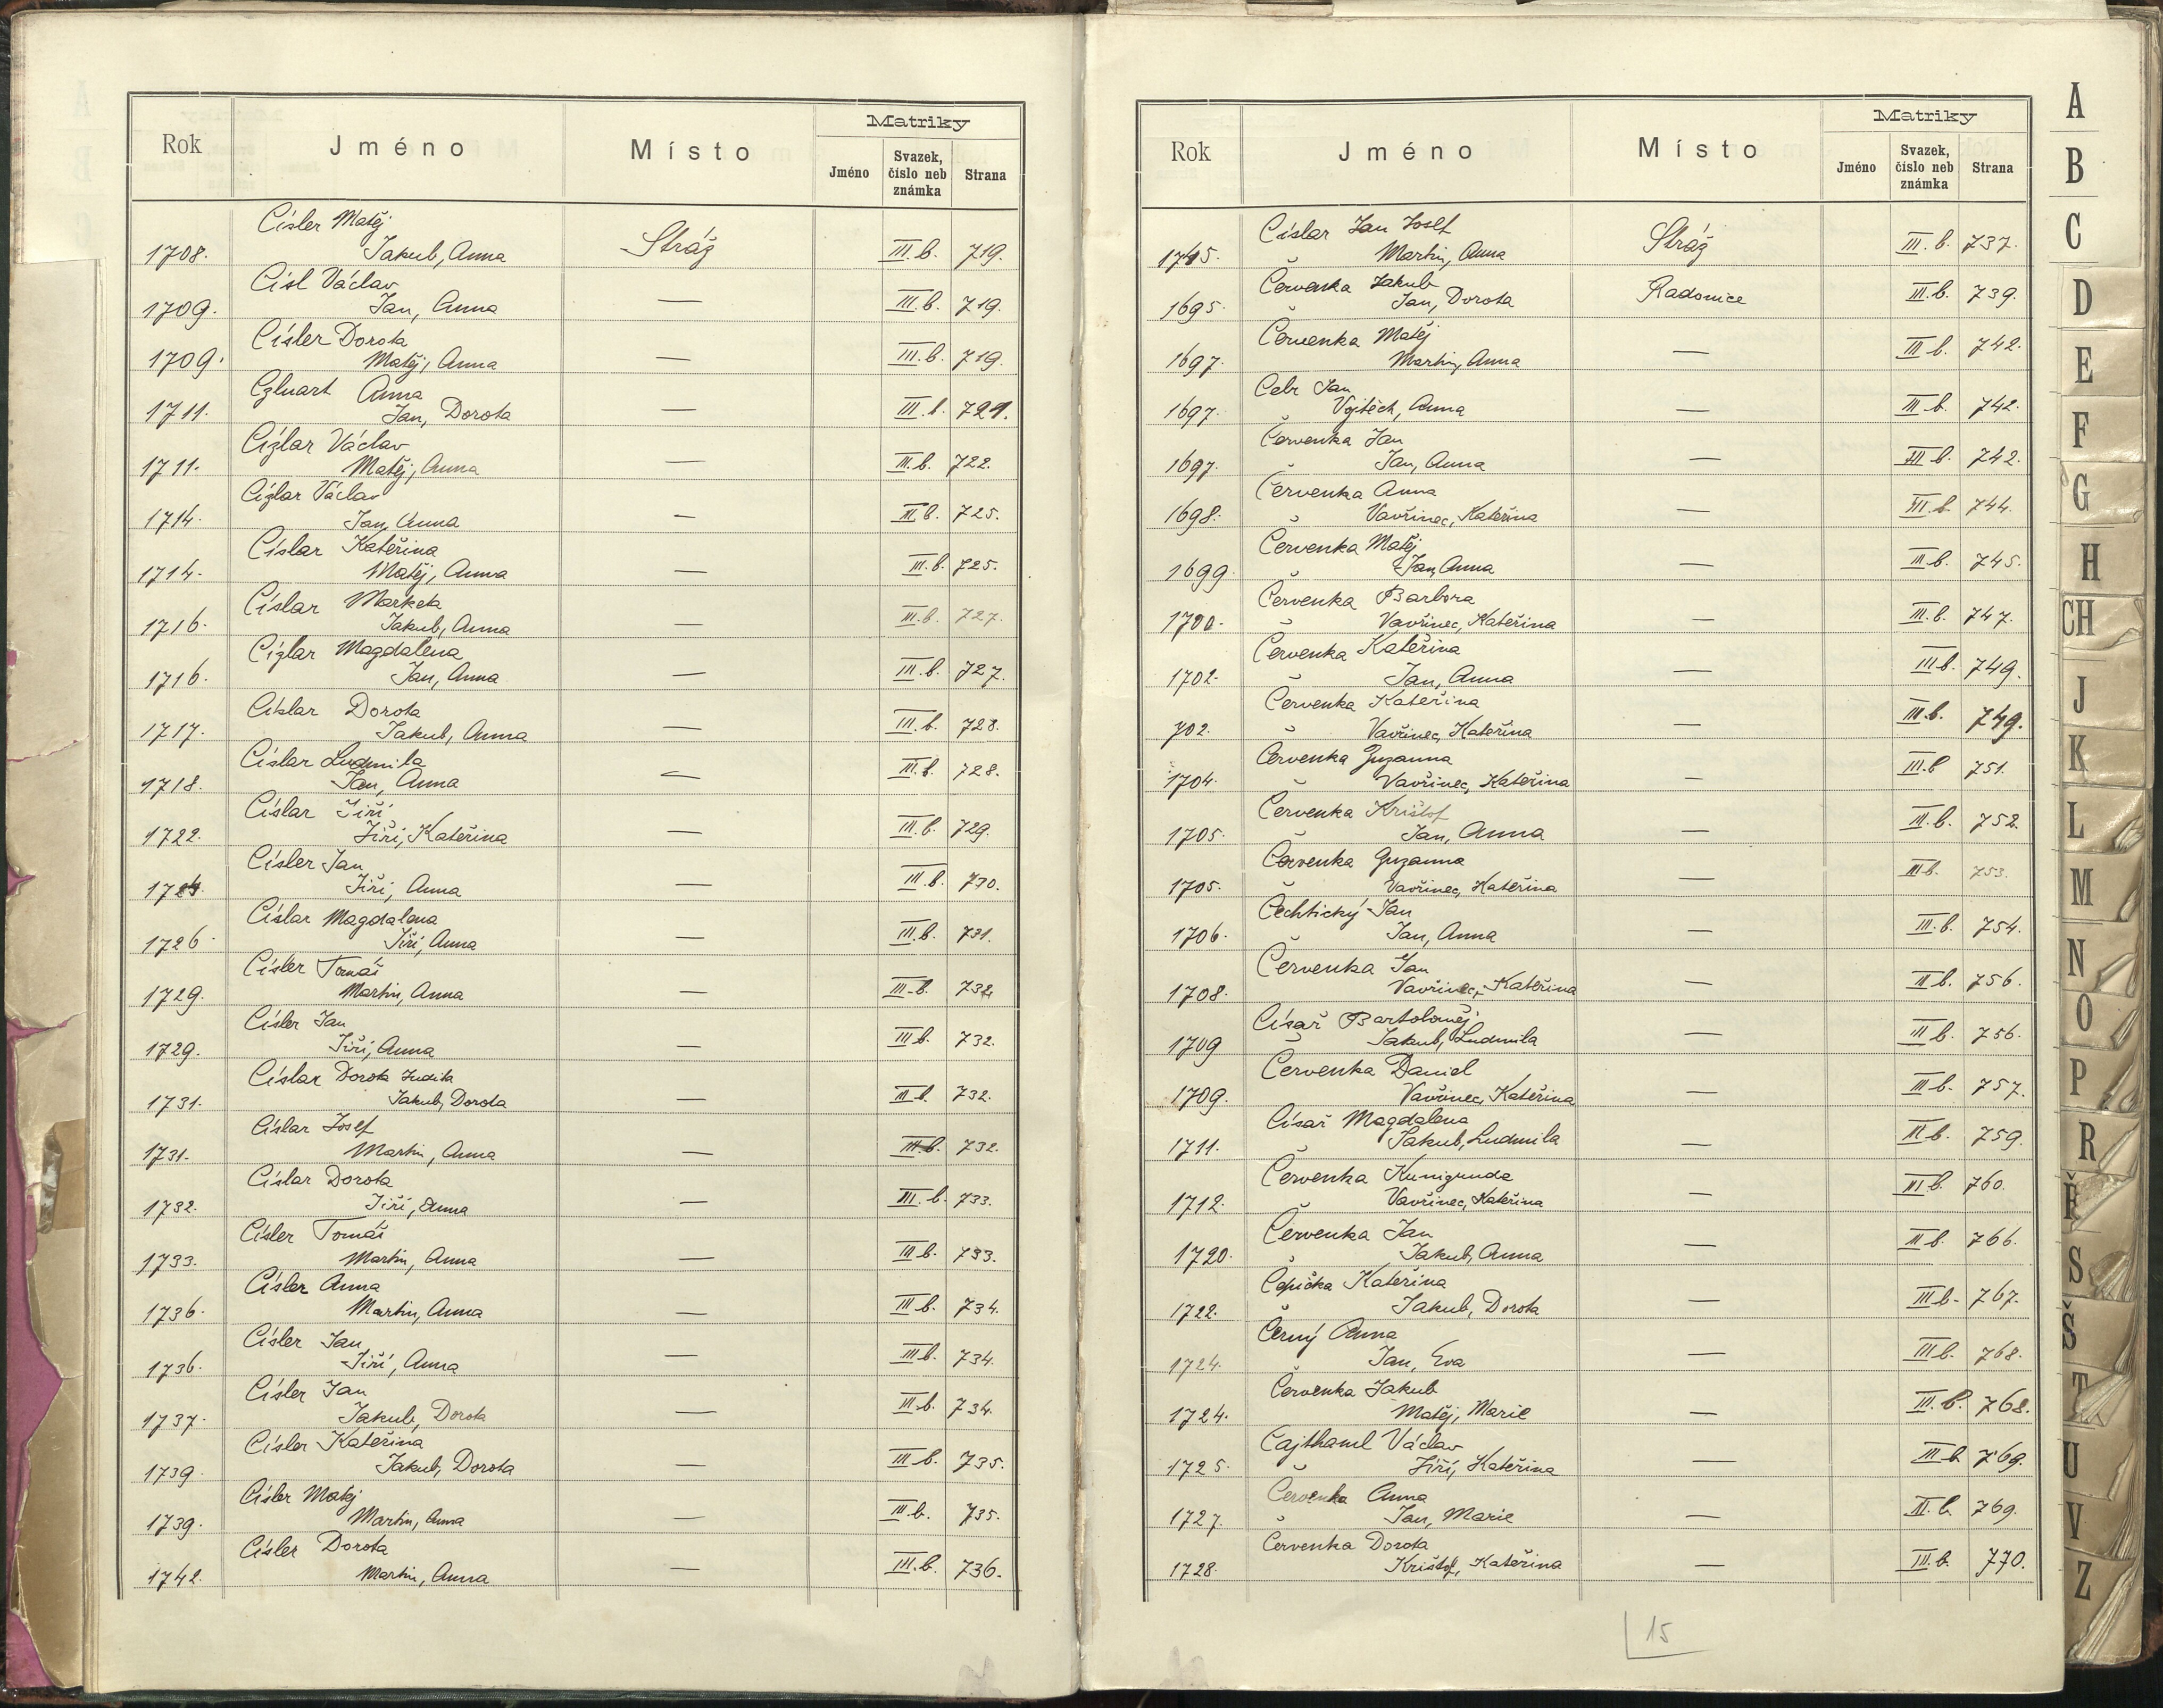 Matriky
Rok Jméno Místo Jméno Svazek, číslo neb známka Strana
Císler Matěj
1708. Jakub, Anna Stráž III.b. 719.
Císl Václav
1709. Jan, Anna — III.b. 719.
Císler Dorota
1709. Matěj, Anna — III.b. 719.
Anna
1711. Jan, Dorota — III.b. 721.
Cízlar Václav
1711. Matěj, Anna — III.b. 722.
Cízlar Václav
1714. Jan, Anna — III.b. 725.
Císlar Kateřina
1714. Matěj, Anna — III.b. 725.
Císlar Marketa
1716. Jakub, Anna — III.b. 727.
Cízlar Magdalena
1716. Jan, Anna — III.b. 727.
Císlar Dorota
1717. Jakub, Anna — III.b. 728.
Císlar Ludmila
1718. Jan, Anna — III.b. 728.
Císlar Jiří
1722. Jiří, Kateřina — III.b. 729.
Císler Jan
1724. Jiří, Anna — III.b. 730.
Císlar Magdalena
1726. Jiří, Anna — III.b. 731.
Císler Tomáš
1729. Martin, Anna — III.b. 732.
Císler Jan
1729. Jiří, Anna — III.b. 732.
Císlar Dorota Judita
1731. Jakub, Dorota — III.b. 732.
Císlar Josef
1731. Martin, Anna — III.b. 732.
Císlar Dorota
1732. Jiří, Anna — III.b. 733.
Císler Tomáš
1733. Martin, Anna — III.b. 733.
Císler Anna
1736. Martin, Anna — III.b. 734.
Císler Jan
1736. Jiří, Anna — III.b. 734.
Císler Jan
1737. Jakub, Dorota — III.b. 734.
Císler Kateřina
1739. Jakub, Dorota — III.b. 735.
Císler Matěj
1739. Martin, Anna — III.b. 735.
Císler Dorota
1742. Martin, Anna — III.b. 736.
Matriky
Rok Jméno Místo Jméno Svazek, číslo neb známka Strana
Císlar Jan Josef
1745. Martin, Anna Stráž III.b. 737.
Červenka Jakub
1695. Jan, Dorota Radonice III.b. 739.
Červenka Matěj
1697. Martin, Anna — III b. 742.
Cebr Jan
1697. Vojtěch, Anna — III b. 742.
Červenka Jan
1697. Jan, Anna — III b. 742.
Červenka Anna
1698. Vavřinec, Kateřina — III.b. 744.
Červenka Matěj
1699. Jan, Anna — III b. 745.
Červenka Barbora
1700. Vavřinec, Kateřina — III.b. 747.
Červenka Kateřina
1702. Jan, Anna — III b. 749.
Červenka Kateřina
702. Vavřinec, Kateřina — III.b. 749.
Červenka Zuzanna
1704. Vavřinec, Kateřina — III.b 751.
Červenka Krištof
1705. Jan, Anna — III.b. 752.
Červenka Zuzanna
1705. Vavřinec, Kateřina — III b. 753.
Čechtický Jan
1706. Jan, Anna — III.b. 754.
Červenka Jan
1708. Vavřinec, Kateřina — III b. 756.
Císař Bartoloměj
1709 Jakub, Ludmila — III b. 756.
Červenka Daniel
1709. Vavřinec, Kateřina — III b. 757.
Císař Magdalena
1711. Jakub, Ludmila — III b. 759.
Červenka Kunigunda
1712. Vavřinec, Kateřina — III b. 760.
Červenka Jan
1720. Jakub, Anna — III b. 766.
Čepička Kateřina
1722. Jakub, Dorota — III b. 767.
Černý Anna
1724. Jan, Eva — III b. 768.
Červenka Jakub
1724. Matěj, Marie — III.b. 768.
Cajthaml Václav
1725. Jiří, Kateřina — III b 769.
Červenka Anna
1727. Jan, Marie — III.b. 769.
Červenka Dorota
1728. Krištof, Kateřina — III.b. 770.
15
A
B
C
D
E
F
G
H
CH
J
K
L
M
N
O
P
R
Ř
S
Š
T
U
V
Z